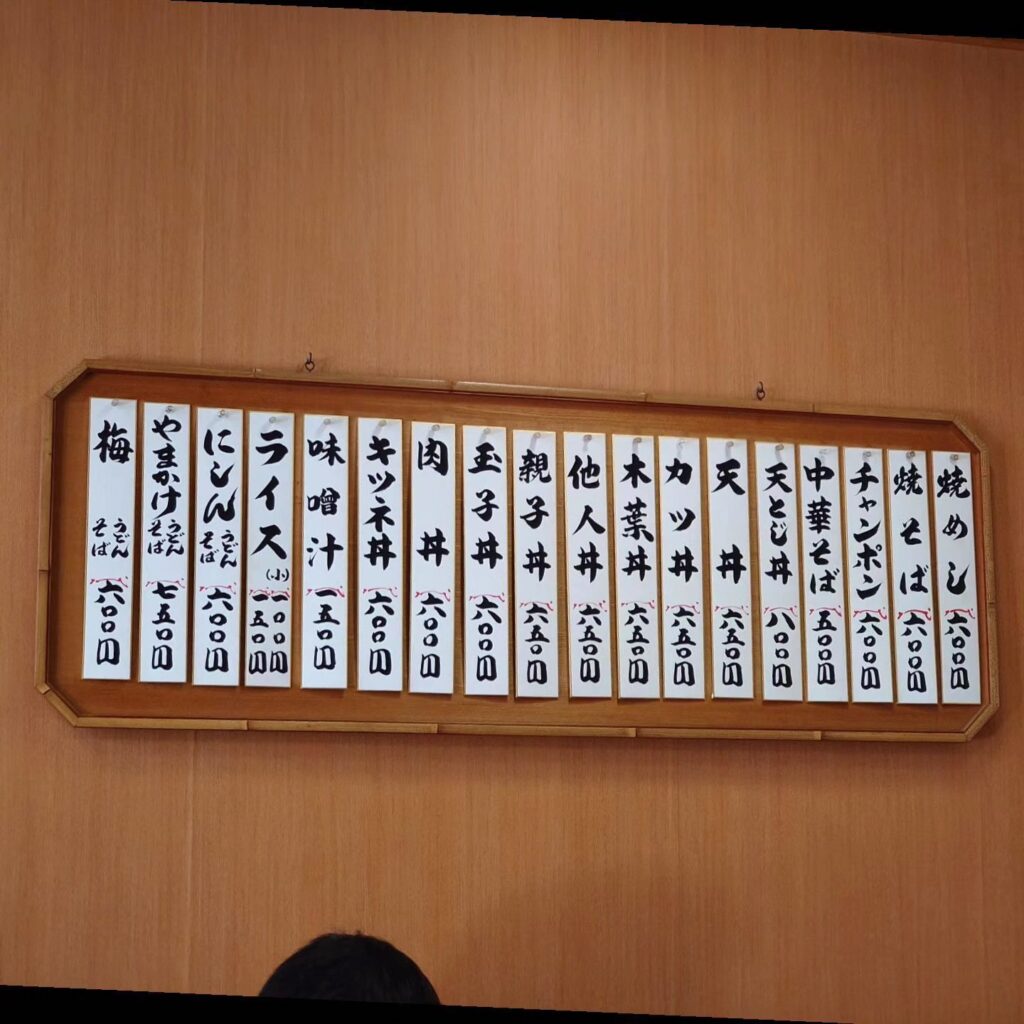 焼めし 六〇〇円
焼そば 六〇〇円
チャンポン 六〇〇円
中華そば 五〇〇円
天とじ丼 八〇〇円
天丼 六五〇円
カツ丼 六五〇円
木葉丼 六五〇円
他人丼 六五〇円
親子丼 六五〇円
玉子丼 六〇〇円
肉丼 六〇〇円
キツネ丼 六〇〇円
味噌汁 一五〇円
ライス 一五〇円
(小) 一〇〇円
にしん うどん そば 六〇〇円
やまかけ うどん そば 七五〇円
梅 うどん そば 六〇〇円